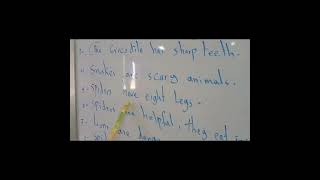 The Crocodile has sharp teeth.
Snakes are scary animals.
spiders have eight legs.
spiders are helpful, they eat
are